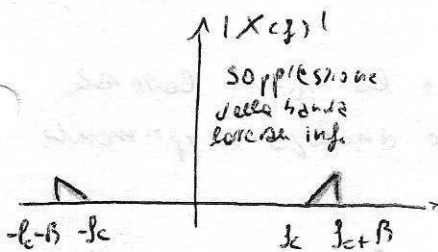 |X(f)|
soppressione
della banda
laterale inf.
-fc-B -fc fc fc+B